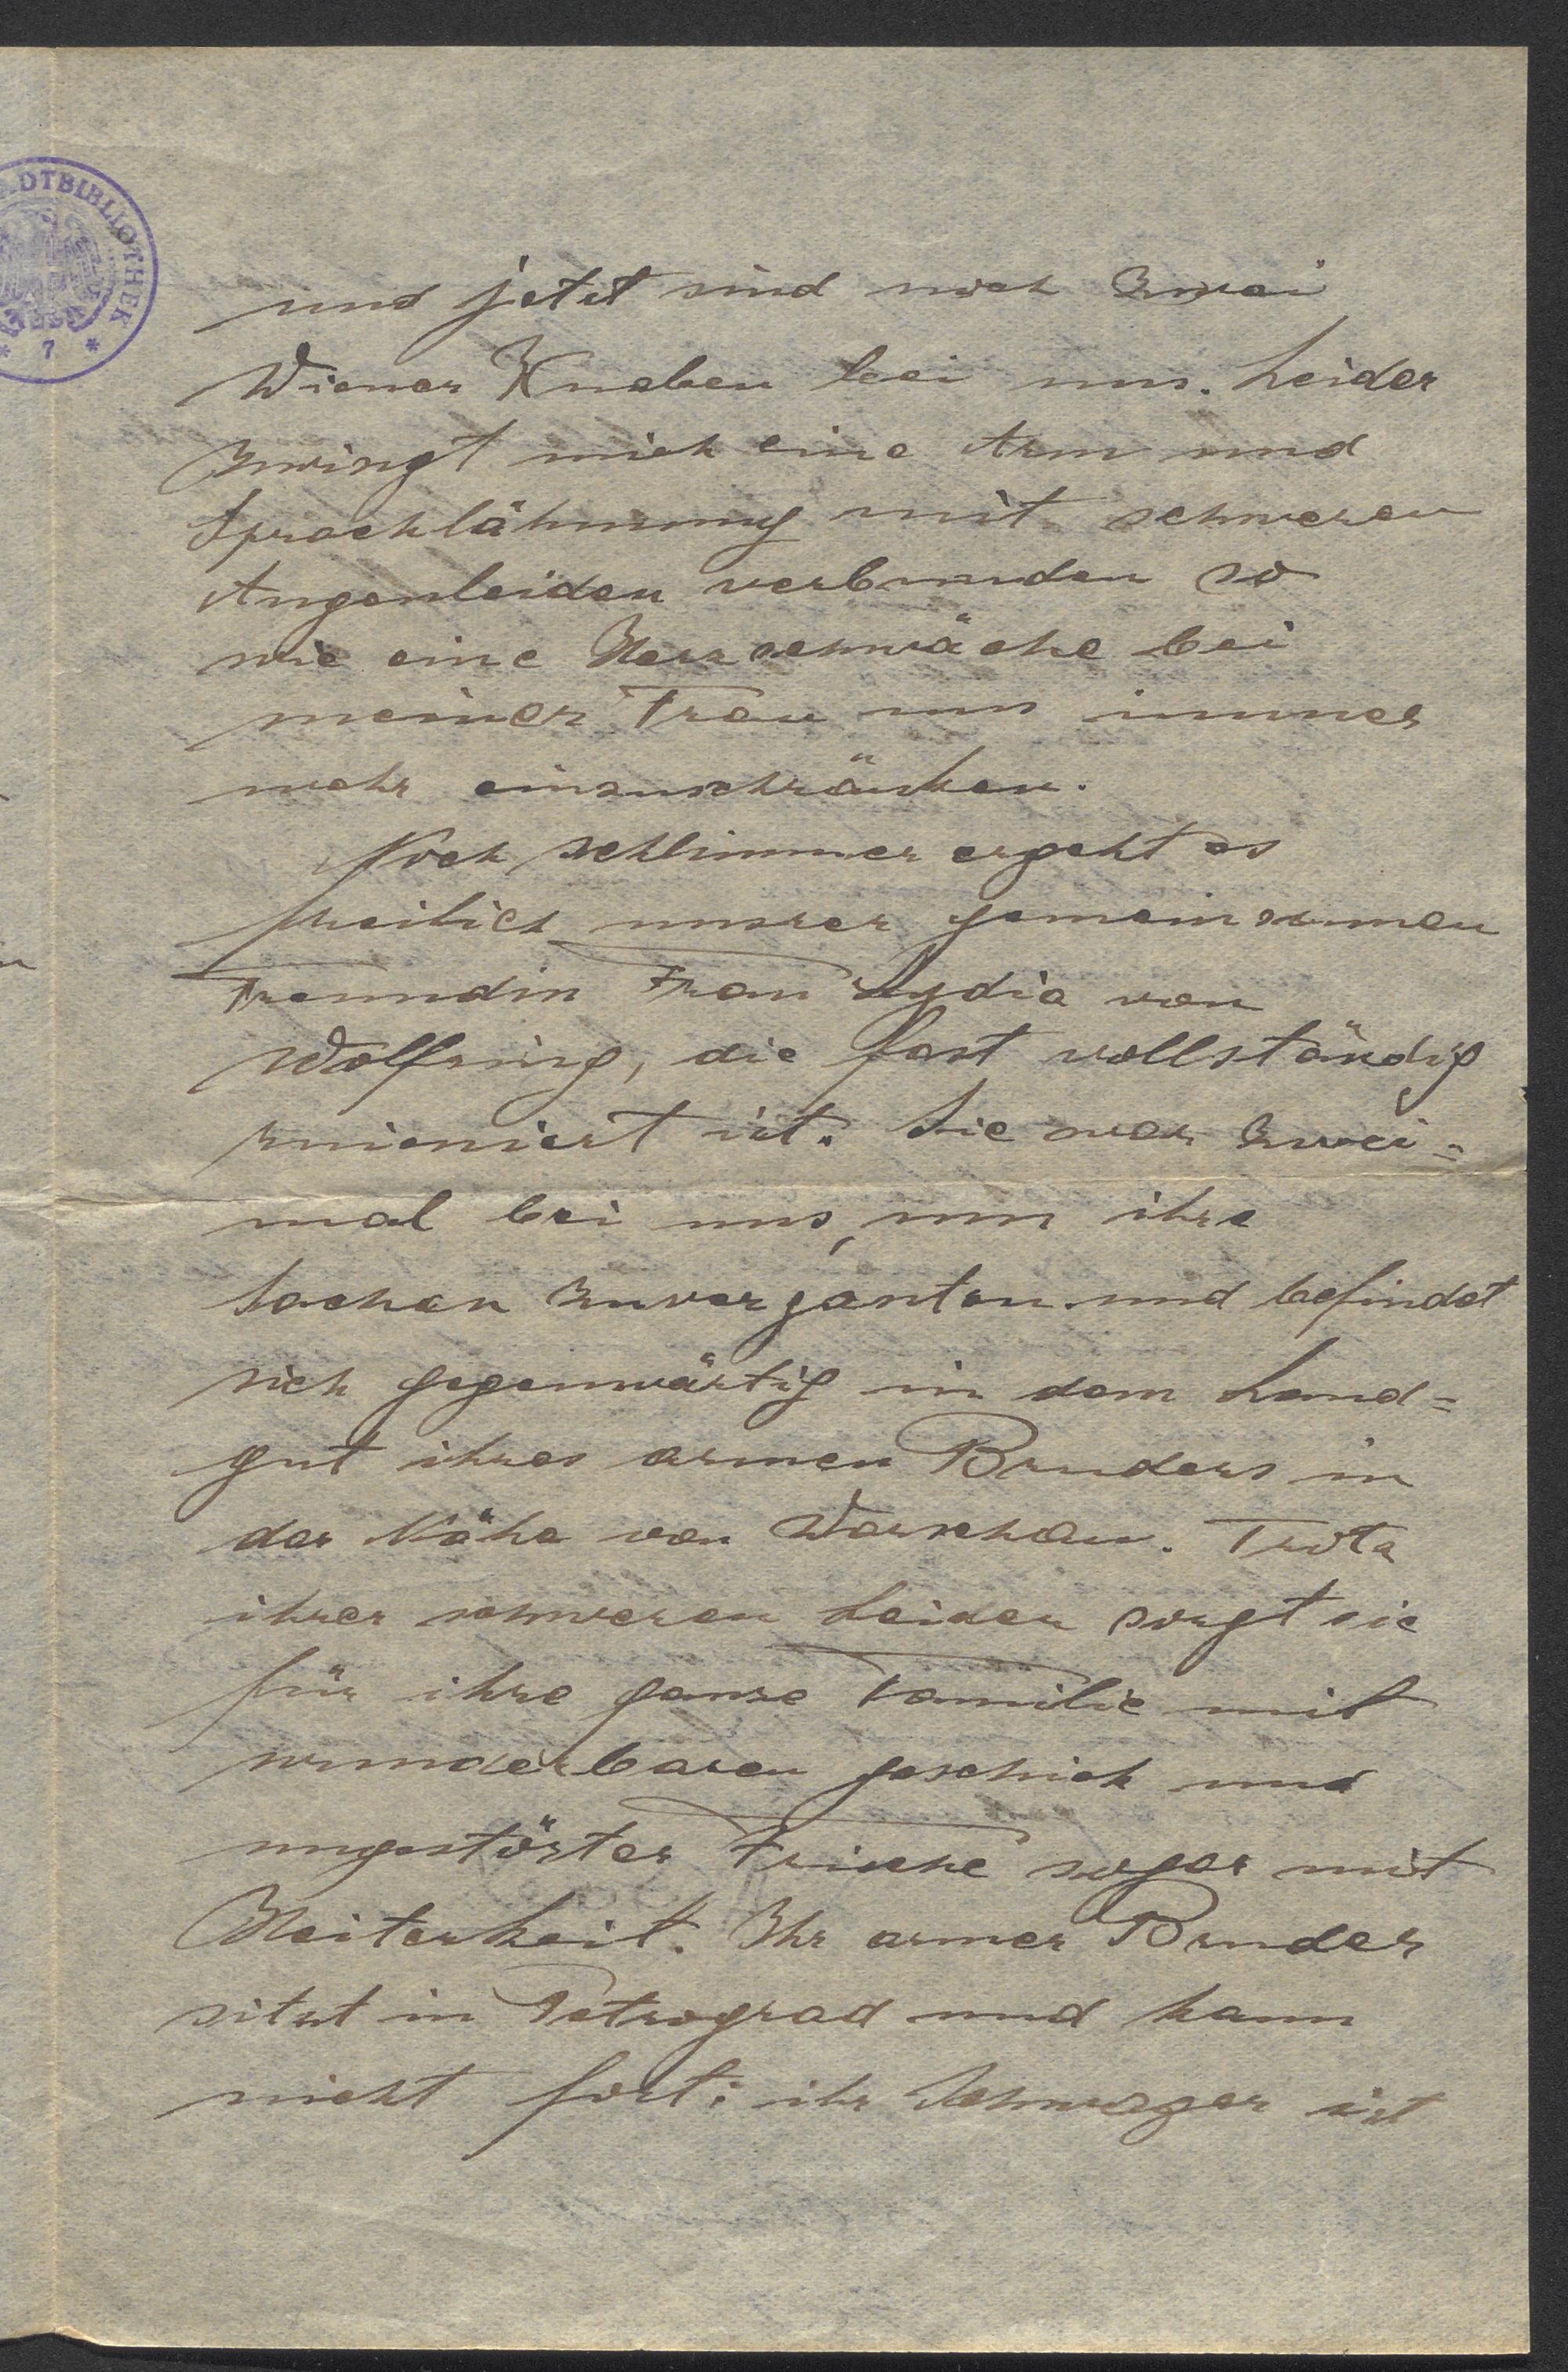 ADTBIBLIOTHEK
* 7 *
und jetzt sind noch zwei
Wiener Knaben bei uns. Leider
zwingt mich eine Arm und
Sprachlähmung mit schweren
Augenleiden verbunden so
wie eine Herzschwäche bei
meiner Frau uns immer
mehr einzuschränken.
Noch schlimmer ergeht es
freilich unsrer gemeinsamen
Freundin Frau Lydia von
Wolfring, die fast vollständig
ruieniert ist. Sie war zwei=
mal bei uns, um ihre
Sachen zuverganten und befindet
sich gegenwärtig in dem Land=
gut ihres armen Bruders in
der Nähe von Warschau. Trotz
ihrer schweren Leiden sorgt sie
für ihre ganze Familie mit
wunderbaren geschick und
ungestörter Frische sogar mit
Heiterkeit. Ihr armer Bruder
sitzt in Petrograd und kann
nicht fort; ihr Schwager ist